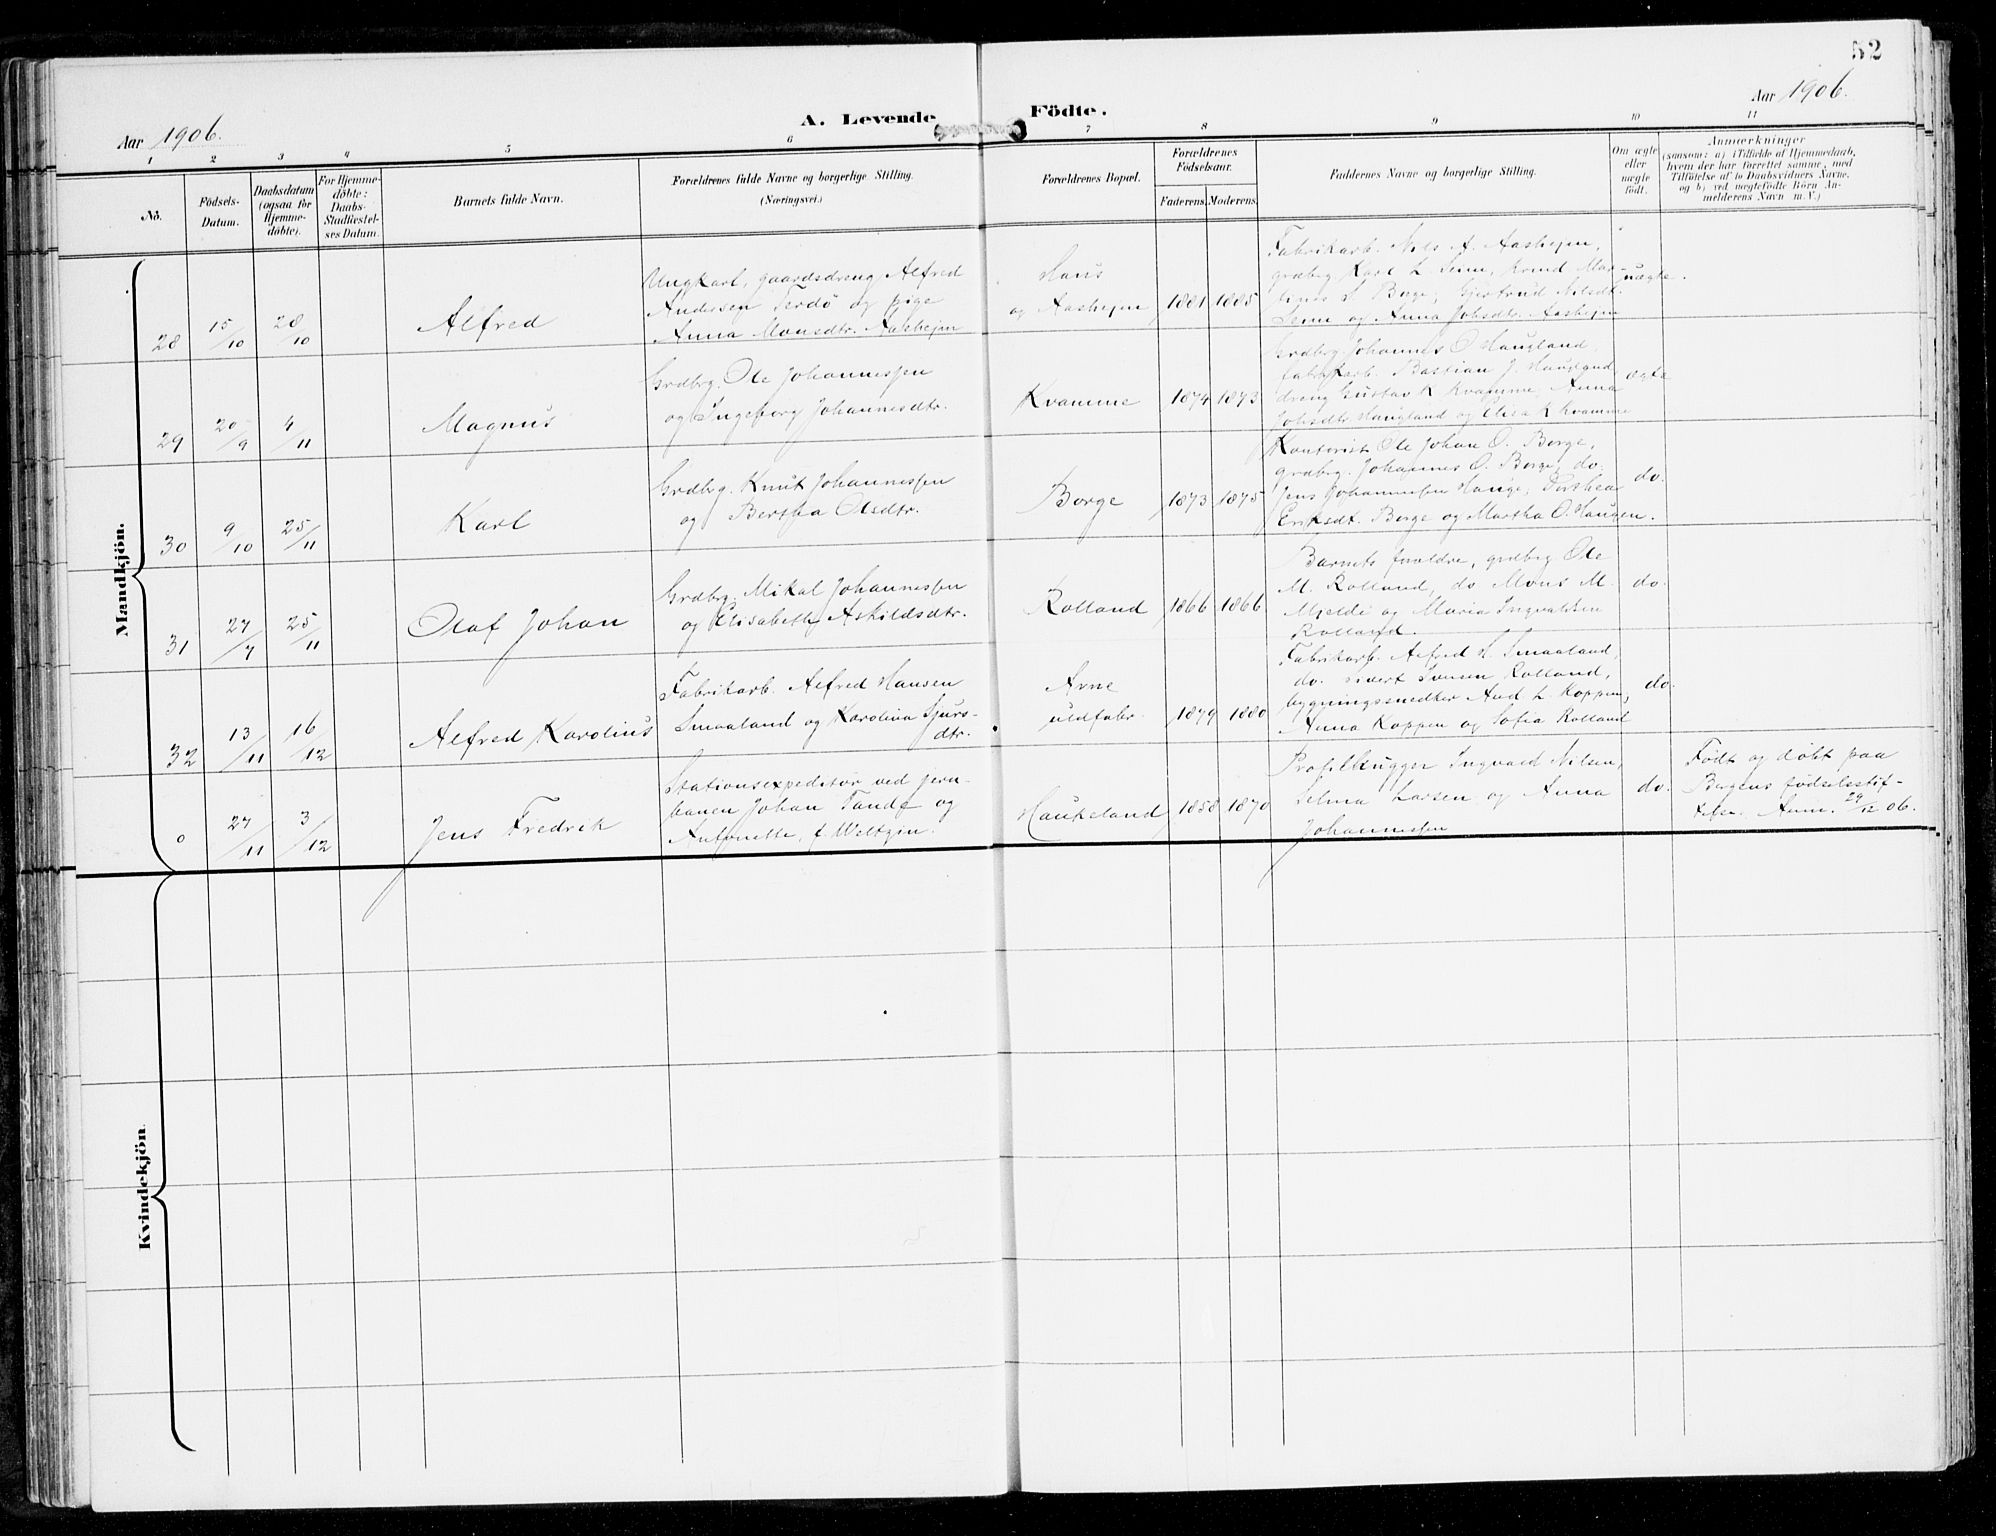 52
Aar 1906.
A. Levende Födte.
Aar 1906.
1 2 3 4 5 6 7 8 9 10 11
No.
Födsels-
Datum.
Daabsdatum
(ogsaa for
Hjemme-
döbte).
For Hjemme-
döbte:
Daabs-
Stadfæstel-
ses Datum.
Barnets fulde Navn.
Forældrenes fulde Navne og borgerlige Stilling.
(Næringsvei.)
Forældrenes Bopæl.
Forældrenes
Födselsaar.
Faderens. Moderens.
Faddernes Navne og borgerlige Stilling.
Om ægte
eller
uægte
födt.
Anmærkninger
(saasom: a) i Tilfælde af Hjemmedaab,
hvem der har forrettet samme, med
Tilföielse af to Daabsvidners Navne,
og b) ved uægtefödte Börn An-
melderens Navn m.V.)
Mandkjön.
28 15/10 28/10
Alfred
Ungkarl, gaardsdreng Alfred
Andersen Terdö og pige
Anna Monsdtr. Aashejm
Haus
og Aashejm
1881 1885
Fabrikarb. Nils A. Aashejm,
grdbrg Karl L. Senn, kvind Mar-
Borge, Gjertrud Nilsdt.
Senn og Anna Johsdtr. Aashejm
uægte.
29 20/9 4/11
Magnus
Grdbrg. Ole Johannessen
og Ingeborg Johannesdtr.
Kvamme
1874 1873
Grdbrg Johannes O Haugland,
fabrikarb. Bastian J. Haugland
dreng Gustav K Kvamme, Anna
Johsdtr Haugland og Elisa K Kvamme
ægte
30 9/10 25/11
Karl
Grdbrg. Knut Johannessen
og Bertha Olsdtr.
Borge
1873 1875
Kontorist Ole Johan O. Borge,
grdbrg. Johannes O. Borge, do.
Jens Johannessen Hauge,
Eriksdt. Borge og Martha O. Haugen.
do.
31 27/7 25/11
Olaf Johan
Grdbrg. Mikal Johannessen
og Elisabeth Askildsdtr.
Rolland
1866 1866
Barnets forældre, grdbrg Ole
M. Rolland, do Mons M.
Mjelde og Maria Ingvaldsen
Rolland.
do.
32 13/11 16/12
Alfred Karolius
Fabrikarb. Alfred Hansen
Smaaland og Karolina Sjurs-
dtr.
Arne
uldfabr.
1879 1880
Fabrikarb. Alfred H. Smaaland,
do. Sivert Svensen Rolland,
bygningssnedker And L Koppen,
Anna Koppen og Sofia Rolland
do.
0 27/11 3/12
Jens Fredrik
Stationsexpeditör ved jern-
banen Johan Tande og
Antonette, f. Weltzin.
Haukeland
1858 1870
Profilhugger Ingvald Nilsen,
Selma Larsen og Anna
Johannessen
do.
Födt og döbt paa
Bergens födselsstif-
telse. Anm. 29/12 06.
Kvindekjön.